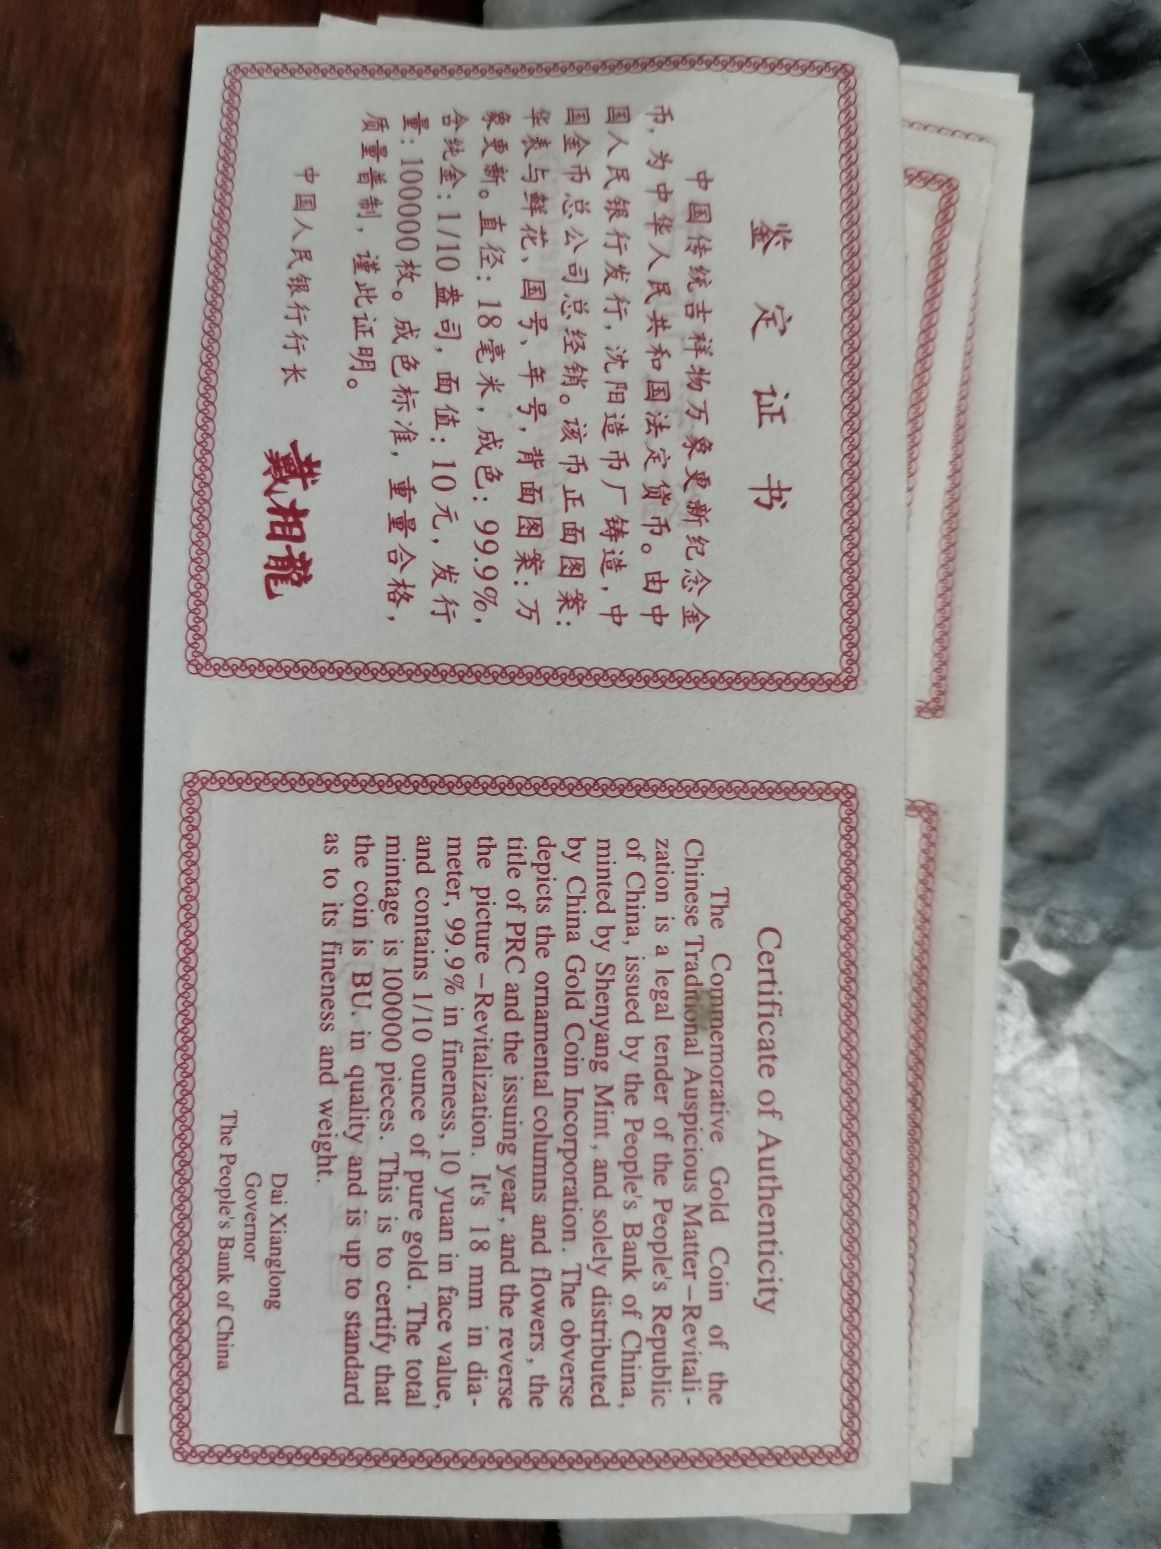 鉴定证书
中国传统吉祥物万象更新纪念金
币，为中华人民共和国法定货币。由中
国人民银行发行，沈阳造币厂铸造，中
国金币总公司总经销。该币正面图案：
华表与鲜花、国号、年号，背面图案：万
象更新。直径：18毫米，成色：99.9%，
含纯金：1/10盎司，面值：10元，发行
量：100000枚。成色标准，重量合格，
质量普制，谨此证明。
中国人民银行行长 戴相龍
Certificate of Authenticity
The Commemorative Gold Coin of the
Chinese Traditional Auspicious Matter–Revitali-
zation is a legal tender of the People's Republic
of China, issued by the People's Bank of China,
minted by Shenyang Mint, and solely distributed
by China Gold Coin Incorporation. The obverse
depicts the ornamental columns and flowers, the
title of PRC and the issuing year, and the reverse
the picture –Revitalization. It's 18 mm in dia-
meter, 99.9% in fineness, 10 yuan in face value,
and contains 1/10 ounce of pure gold. The total
mintage is 100000 pieces. This is to certify that
the coin is BU. in quality and is up to standard
as to its fineness and weight.
Dai Xianglong
Governor
The People's Bank of China